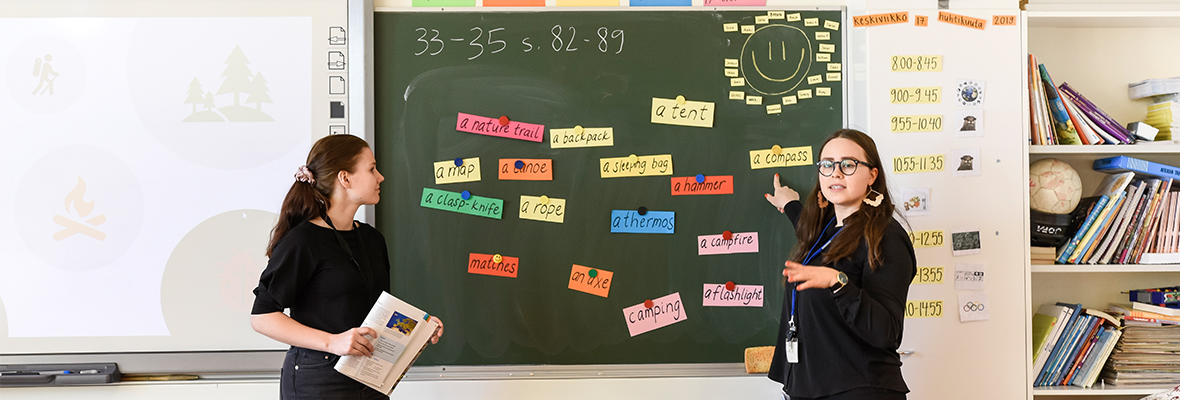 33-35 s. 82-89
KESKIVIIKKO 17. HUHTIKUUTA 2019
a tent
a nature trail
a backpack
a compass
a map
a canoe
a sleeping bag
a hammer
a clasp-knife
a rope
a thermos
a campfire
matches
an axe
a flashlight
camping
8.00-8.45
9.00-9.45
9.55-10.40
10.55-11.35
-12.55
13.55
-14.55